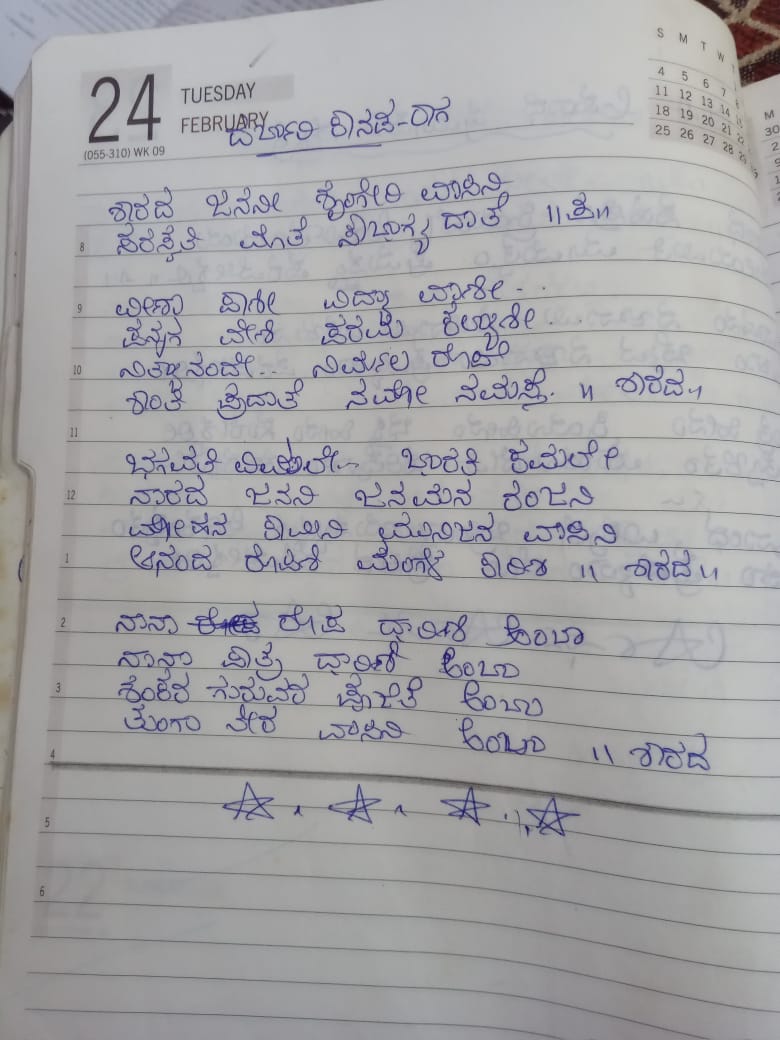 24
TUESDAY
FEBRUARY
(055-310) WK 09
S M T W
4 5 6 7
11 12 13 14
18 19 20 21
25 26 27 28
M
30
ದರ್ಬಾರಿ ಕಾನಡ-ರಾಗ
ಶಾರದ ಜನನೀ ಶೃಂಗೇರಿ ವಾಸಿನಿ
8 ಸರಸ್ವತಿ ಮಾತೆ ಸೌಭಾಗ್ಯ ದಾತೆ ॥ಶಾ॥
9 ವೀಣಾ ಪಾಣೀ ವಿದ್ಯಾ ವಾಣೀ..
ಪನ್ನಗ ವೇಣಿ ಪರಮ ಕಲ್ಯಾಣೀ..
10 ನಿತ್ಯಾನಂದೇ.. ನಿರ್ಮಲ ರೂಪೇ
ಶಾಂತ ಪ್ರದಾತೆ ನಮೋ ನಮಸ್ತೆ. ॥ ಶಾರದ॥
11
ಭಗವತಿ ವಿಮಲೇ.. ಭಾರತಿ ಕಮಲೇ
12 ನಾರದ ಜನನಿ ಜನಮನ ರಂಜನಿ
ಮೋಹನ ಕಾಮಿನಿ ಮುನಿಜನ ವಾಸಿನಿ
1 ಆನಂದ ರೂಪಿಣಿ ಮಂಗಳ ಕಾರಿಣಿ ॥ ಶಾರದ॥
2 ನಾನಾ ರೂಪ ಧಾರಿಣಿ ಅಂಬಾ
ನಾನಾ ಪಾತ್ರ ಧಾರಿಣಿ ಅಂಬಾ
3 ಶಂಕರ ಗುರುವರ ಪೂಜಿತೆ ಅಂಬಾ
ತುಂಗಾ ತೀರ ವಾಸಿನಿ ಅಂಬಾ ॥ ಶಾರದ
4
5
6